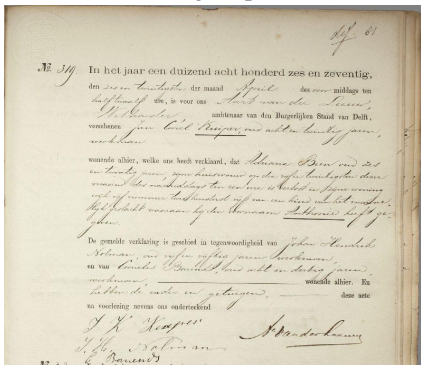 def. 81
No. 319. In het jaar een duizend acht honderd zes en zeventig,
den zes en twintigsten der maand April des voor middags ten
half twaalf ure, is voor ons Aart van der Leeuw,
Wethouder ambtenaar van den Burgerlijken Stand van Delft,
verschenen Jan Cornelis Kuijper, oud acht en twintig jaren,
werkman
wonende alhier, welke ons heeft verklaard, dat Adriana Ben oud zes
en twintig jaren, zijne huisvrouw op den vijfen twintigsten dezer
maand des namiddags ten een ure is verlost in zijne woning
wijk vijf nummer van een kind van het manne-
lijk geslacht waaraan hij den voornaam Anthonie heeft ge-
geven.
De gemelde verklaring is geschied in tegenwoordigheid van Johan Hendrik
Nolman, oud vijfen vijftig jaren, werkman,
en van Cornelis Barends, oud acht en dertig jaren,
werkman wonende alhier. En
hebben de vader en getuigen, deze acte
na voorlezing nevens ons onderteekend
J. K. Kuijper
A. van der Leeuw
J. H. Nolman
C. Barends